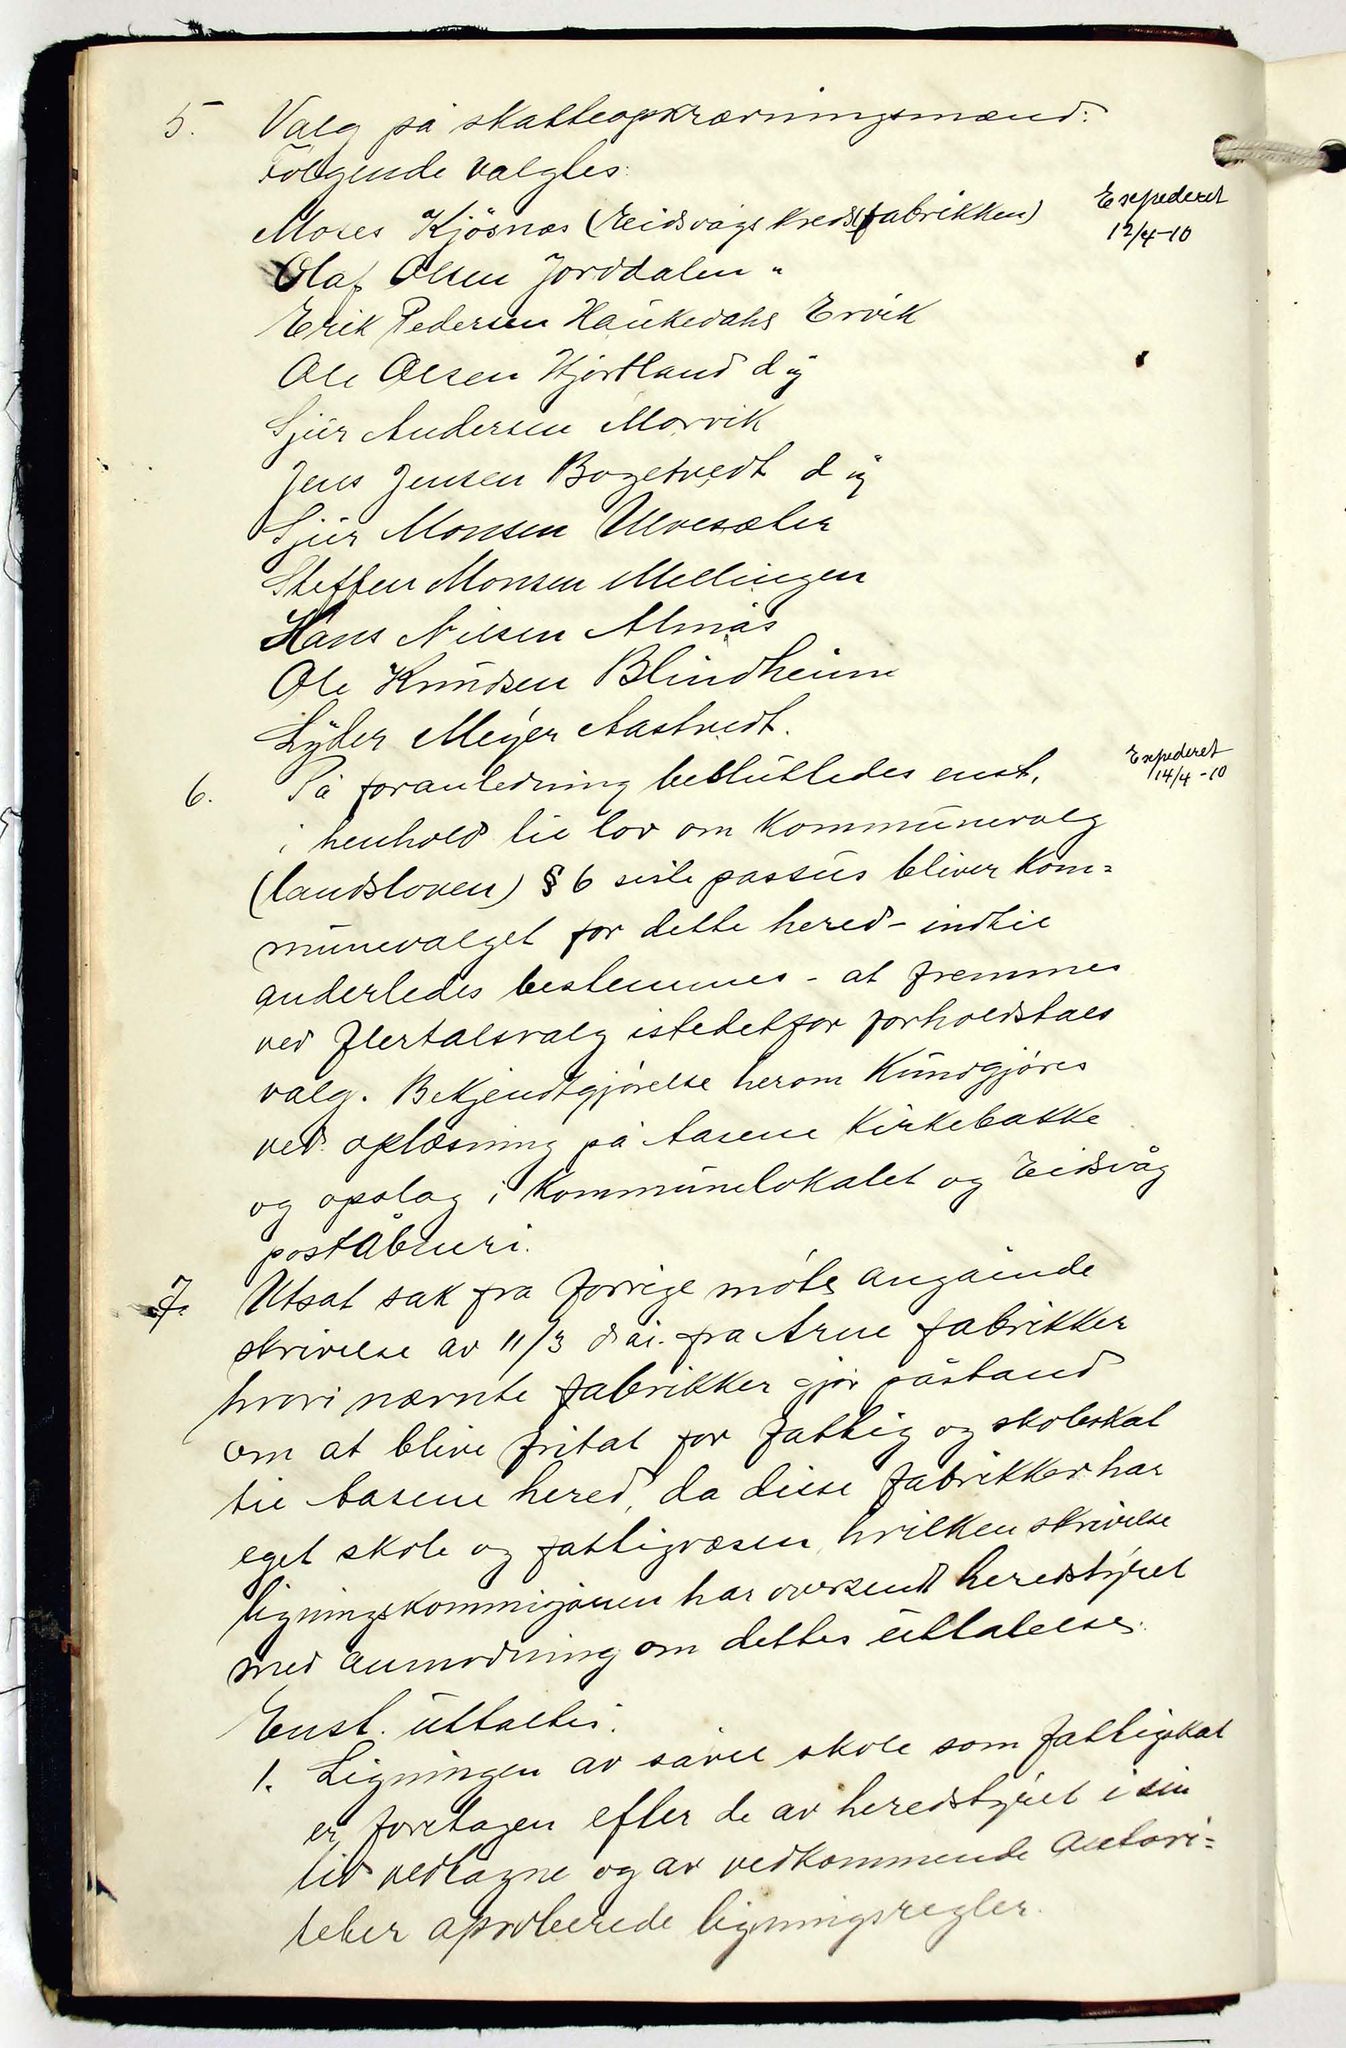 5. Valg på skatteopkrævningsmænd:
Følgende valgtes:
Moses Kjøsnæs (Eidsvågs kreds fabrikken) Expederet
Olaf Olsen Jorddalen " 12/4-10
Erik Pedersen Haukedals Ervik
Ole Olsen Hjortland
Sjur Andersen Morvik
Jens Jensen Bogetvedt
Sjur Monsen Ulvesæter
Steffen Monsen Mellingen
Hans Nilsen Almås
Ole Knudsen Blindheim
Lyder Meyer Aastvedt.
6. På foranledning besluttedes enst. Expederet
i henhold til lov om kommunevalg 14/4-10
(landsloven) § 6 siste passus bliver kom=
munevalget for dette hered - indtil
anderledes bestemmes - at fremmes
ved flertalsvalg istedetfor forholdstals
valg. Bekjendtgjørelse herom kundgjøres
ved oplæsning på Aasene kirkebakke
og opslag i kommunelokalet og Eidsvåg
poståbneri.
7. Utsat sak fra forrige møte angående
skrivelse av 11/3 d.å. fra Arne fabrikker
hvori nævnte fabrikker gjør påstand
om at blive fritat for fattig og skoleskat
til Aasene hered, da disse fabrikker har
eget skole og fattigvæsen, hvilken skrivelse
ligningskommisjonen har oversendt heredstyret
med anmodning om dettes uttalelse.
Enst. uttaltes:
1. Ligningen av såvel skole som fattigskat
er foretagen efter de av heredstyret i sin
tid vedtagne og av vedkommende autori=
teter aproberede ligningsregler.